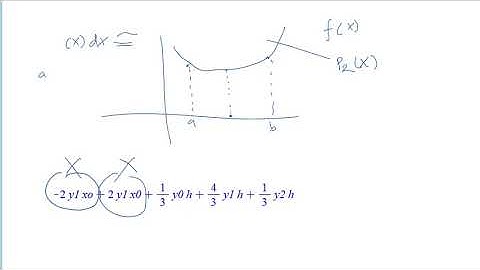 f(x)
(x) dx ≅
P2(x)
a
a b
X X
-2 y1 xo + 2 y1 x0 + 1/3 y0 h + 4/3 y1 h + 1/3 y2 h